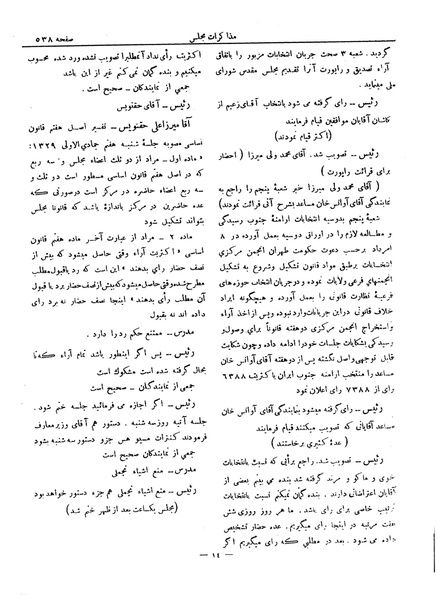 مذاکرات مجلس
صفحه ۵۳۸
گردید. شعبه ۳ صحت جریان انتخابات مزبور را باتفاق
آراء تصدیق و راپورت آنرا تقدیم مجلس مقدس شورای
ملی مینماید.
رئیس - رای گرفته می شود بانتخاب آقای زعیم از
کاشان آقایان موافقین قیام فرمایند
(اکثر قیام نمودند)
رئیس - تصویب شد. آقای محمد ولی میرزا (احضار
برای قرائت راپورت)
(آقای محمد ولی میرزا خبر شعبهٔ پنجم را راجع به
نمایندگی آقای آوانس خان مساعد بشرح آتی قرائت نمودند)
شعبهٔ پنجم بدوسیه انتخابات ارامنهٔ جنوب رسیدگی
و مطالعه لازم را در اوراق دوسیه بعمل آورده در ۸
امرداد برحسب دعوت حکومت طهران انجمن مرکزی
انتخابات برطبق مواد قانون تشکیل وشروع به تشکیل
انجمنهای فرعی ولایات نموده ودرجریان انتخاب حوزه های
فرعیه نظارت قانونی را بعمل آورده و هیچگونه ایراد
خلاف قانونی دراین جریانات وارد نبوده وپس از اخذ آراء
واستخراج انجمن مرکزی دوهفته قانوناً برای وصول و
رسیدگی بشکایات جلسات خودرا ادامه داده وچون شکایت
قابل توجهی واصل نگشته پس از دوهفته آقای آوانس خان
مساعد را منتخب ارامنه جنوب ایران با کثریت ۶۳۸۸
رای از ۷۳۸۸ رای اعلان نمود
رئیس - رای گرفته میشود بنمایندگی آقای آوانس خان
مساعد آقایانی که تصویب میکنند قیام فرمایند
(عدهٔ کثیری برخاستند)
رئیس - تصویب شد. راجع برأیی که نسبت بانتخابات
خوی و ماکو و مرند گرفته شد بنده می بینم بعضی از
آقایان اعتراضاتی دارند. بنده گمان نمیکنم نسبت بانتخابات
ترتیب خاصی برای رأی باشد. ما هر روز روزی شش
هفت مرتبه در اینجا رای میگیریم. عده حضار تشخیص
داده می شود. بعد در مطلبی که رای میگیریم اگر
اکثریت رأی نداد آنمطلب را تصویب نشده ورد شده محسوب
میکنیم و بنده گمان نمی کنم غیر از این باشد
جمعی از نمایندگان - صحیح است.
رئیس - آقای حقنویس
آقا میرزاعلی حقنویس - تفسیر اصل هفتم قانون
اساسی مصوبه جلسه شنبه هفتم جمادی الاولی ۱۳۲۹:
«ماده اول - مراد از دو ثلث اعضاء مجلس و سه ربع
که در اصل هفتم قانون اساسی مسطور است دو ثلث و
سه ربع اعضاء حاضره در مرکز است درصورتی که
عده حاضرین در مرکز باندازهٔ باشد که قانونا مجلس
بتواند تشکیل شود
ماده ۲ - مراد از عبارت آخر ماده هفتم قانون
اساسی «اکثریت آراء وقتی حاصل میشود که بیش از
نصف حضار رای بدهند» این است که رد یا قبول مطلب
مطرح شده وقتی حاصل میشود که بیش از نصف حضار برد یا قبول
آن مطلب رأی بدهند» اینجا نصف حضار نه برد رای
داده اند نه بقبول
مدرس - ممتنع حکم رد را دارد.
رئیس - پس اگر اینطور باشد تمام آراء که تا
بحال گرفته شده است مشکوك است
جمعی از نمایندگان - صحیح است
رئیس - اگر اجازه می فرمائید جلسه ختم شود.
جلسه آتیه روز سه شنبه. دستور هم آقای وزیر معارف
فرمودند کنترات مسیو هس جزو دستور سه شنبه بشود
جمعی از نمایندگان صحیح است
مدرس - منع اشیاء تجملی
رئیس - منع اشیاء تجملی هم جزء دستور خواهد بود
(مجلس یکساعت بعد از ظهر ختم شد)
— ۱۴ —